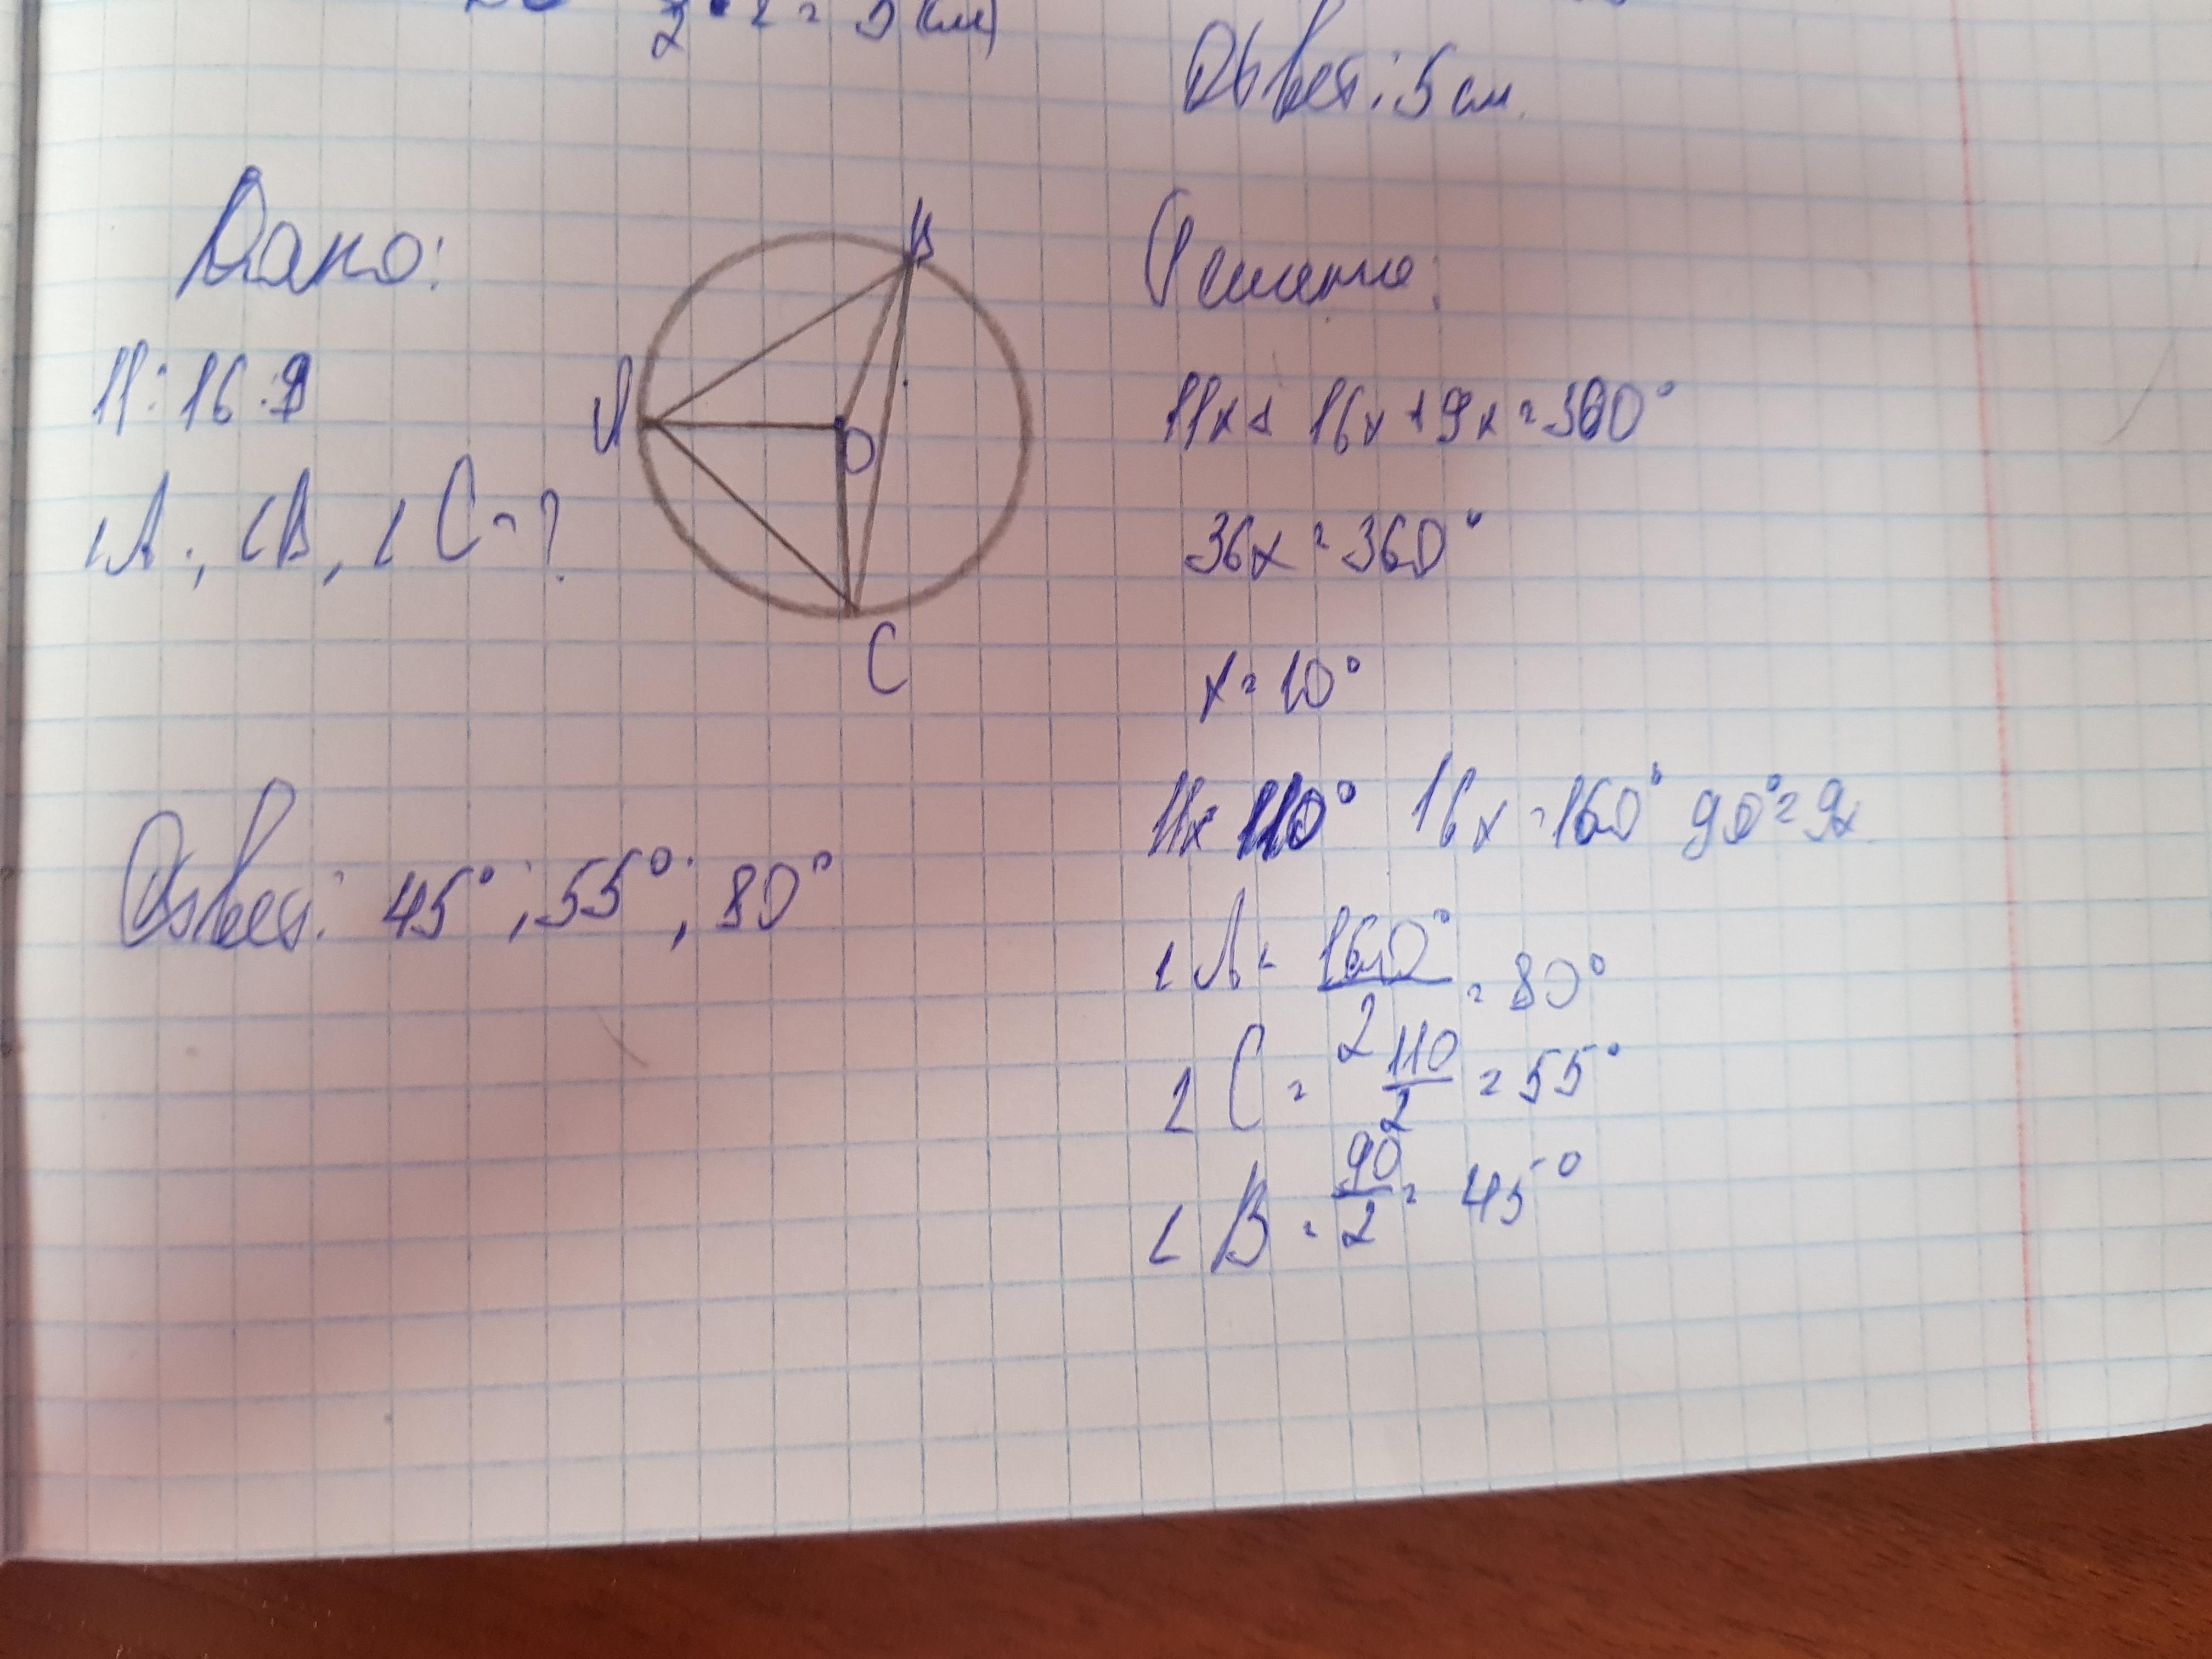 2 · 2 = 5 (см)
Ответ: 5 см.
Дано:
11 : 16 : 9
∠A ; ∠B, ∠C - ?
A
B
O
C
Решение:
11x + 16x + 9x = 360°
36x = 360°
x = 10°
11x = 110° 16x = 160° 90° = 9x
∠A = 160°/2 = 80°
∠C = 110/2 = 55°
∠B = 90/2 = 45°
Ответ: 45° ; 55° ; 80°